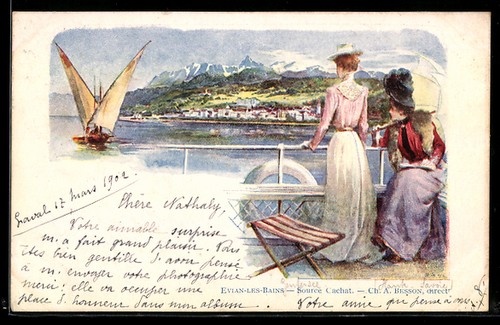 Laval 17 Mars 1902
Chère Nathaly,
Votre aimable surprise
m'a fait grand plaisir. Vous
êtes bien gentille d'avoir pensé
à m'envoyer votre photographie
merci; elle va occuper une
place d'honneur dans mon album.
Votre amie qui pense à vous
EVIAN-LES-BAINS — Source Cachat. — Ch. A. BESSON, direct